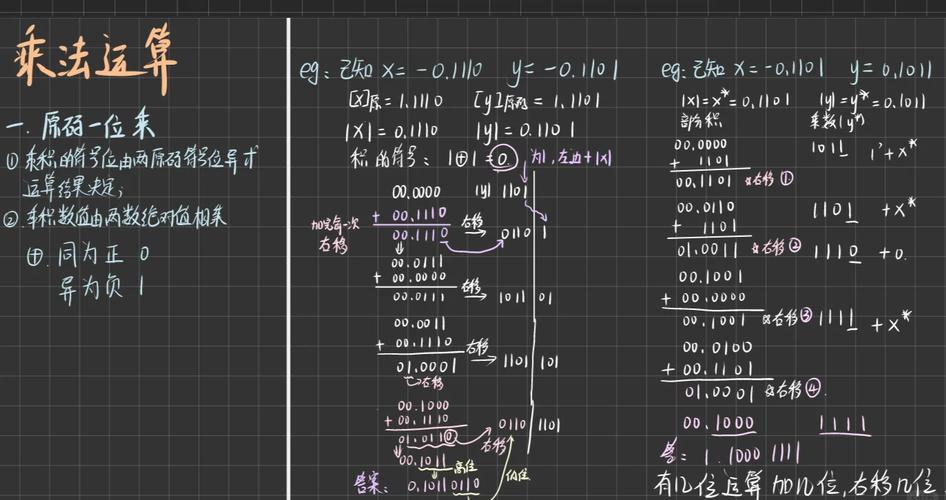 乘法运算
一. 原码一位乘
① 乘积的符号位由两原码符号位异或
运算结果决定;
② 乘积数值由两数绝对值相乘
⊕. 同为正 0
异为负 1
eg: 已知 x = -0.1110 y = -0.1101
[x]原 = 1.1110 [y]原码 = 1.1101
|x| = 0.1110 |y| = 0.1101
积的符号: 1⊕1 = 0. 为1, 左边+|x|
00.0000 |y| 1101
+ 00.1110
加完每一次
右移
00.1110 右移 0110 1
00.0111
+ 00.0000
00.0111 右移 1011 01
00.0011
+ 00.1110 右移
01.0001 1101 101
右移
00.1000
+ 00.1110 0110 1101
01.0110 右移
00.1011 高位 低位
答案: 0.10110110
eg: 已知 x = -0.1101 y = 0.1011
|x| = x* = 0.1101 |y| = y* = 0.1011
部分积 乘数(y*)
00.0000 1011 +x*
+ 1101
00.1101 右移 ①
00.0110 1101 +x*
+ 1101
01.0011 右移 ② 1110 +0.
00.1001
+ 00.0000
00.1001 右移 ③ 1111 +x*
00.0100
+ 00.1101
01.0001 右移 ④
00.1000 1111
答: 1.1000 1111
有几位运算加几位, 右移几位